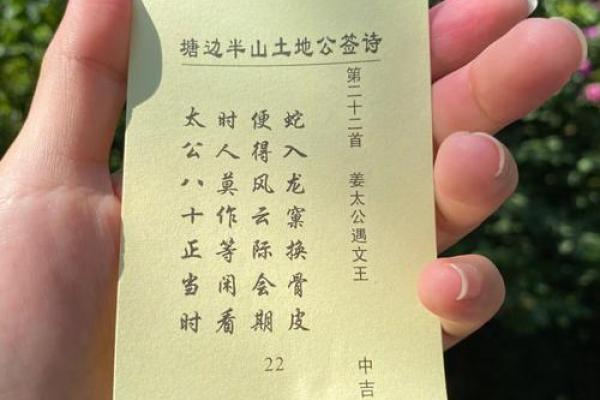 塘边半山土地公签诗
第二十二首 姜太公遇文王
蛇入龙窠换骨皮
便得风云际会期
时人莫作等闲看
太公八十正当时
22
中吉